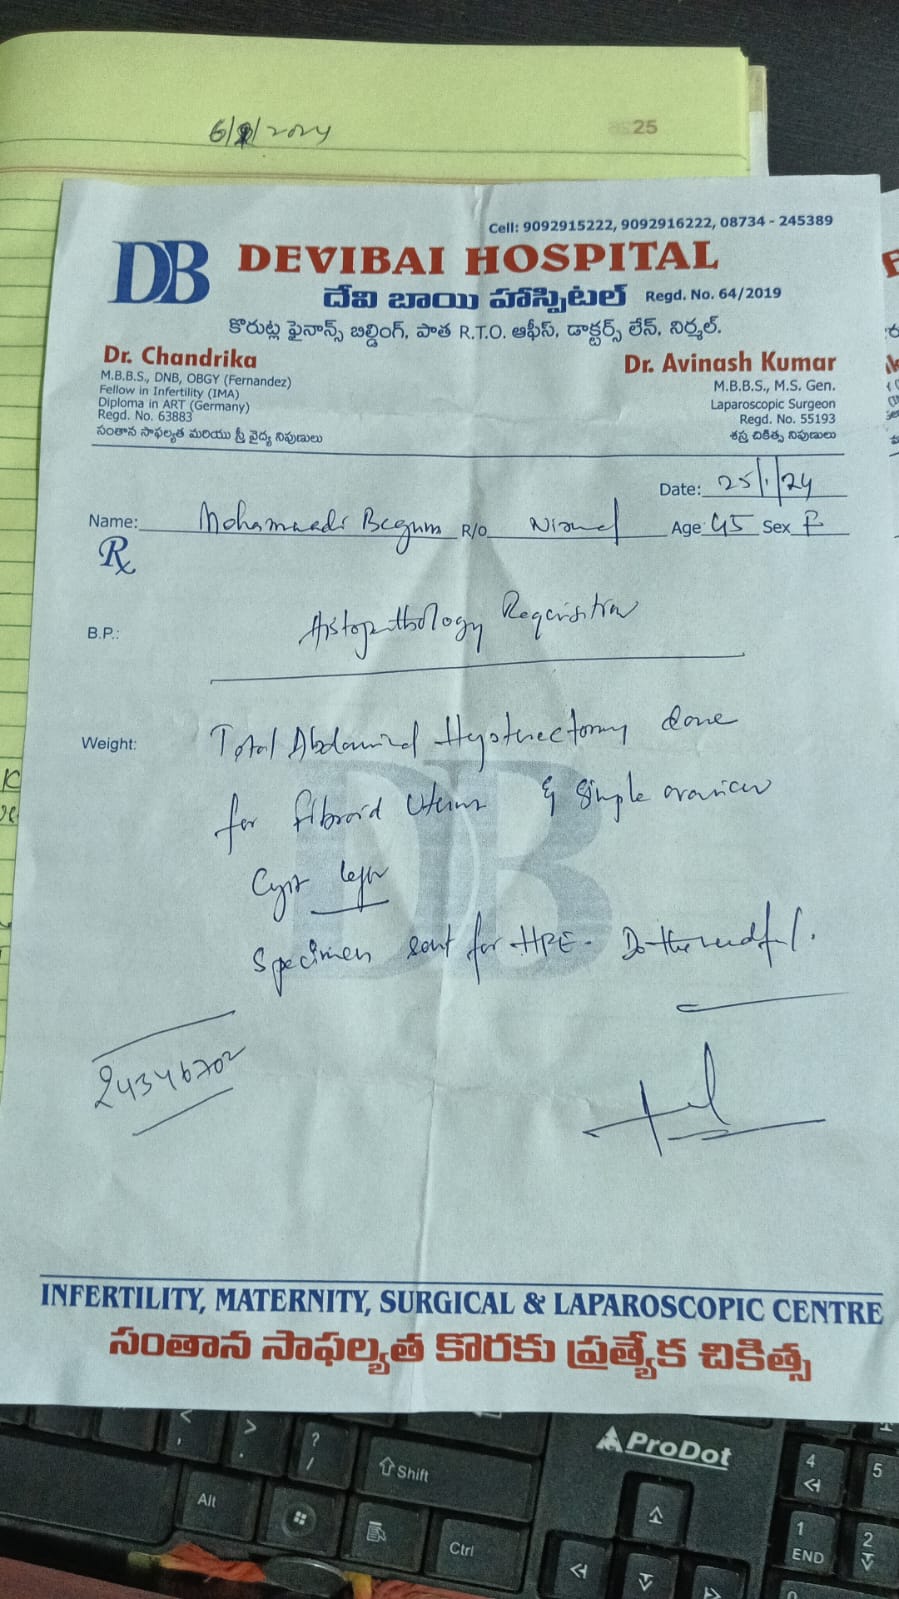 6/2/2024
25
Cell: 9092915222, 9092916222, 08734 - 245389
DB DEVIBAI HOSPITAL
దేవి బాయి హాస్పిటల్ Regd. No. 64/2019
కొరుట్ల ఫైనాన్స్ బిల్డింగ్, పాత R.T.O. ఆఫీస్, డాక్టర్స్ లేన్, నిర్మల్.
Dr. Chandrika
M.B.B.S., DNB, OBGY (Fernandez)
Fellow in Infertility (IMA)
Diploma in ART (Germany)
Regd. No. 63883
సంతాన సాఫల్యత మరియు స్త్రీ వైద్య నిపుణులు
Dr. Avinash Kumar
M.B.B.S., M.S. Gen.
Laparoscopic Surgeon
Regd. No. 55193
శస్త్ర చికిత్స నిపుణులు
Date: 25/1/24
Name: Mohammadi Begum R/O Nirmal Age 45 Sex F
Rx
B.P.: Histopathology Requisition
Weight: Total Abdominal Hysterectomy done
for fibroid Uterus & Simple ovarian
Cyst left
Specimen sent for HPE. Do the needful.
24346702
INFERTILITY, MATERNITY, SURGICAL & LAPAROSCOPIC CENTRE
సంతాన సాఫల్యత కొరకు ప్రత్యేక చికిత్స
ProDot
Shift
Alt
Ctrl
4
5
1
END
2